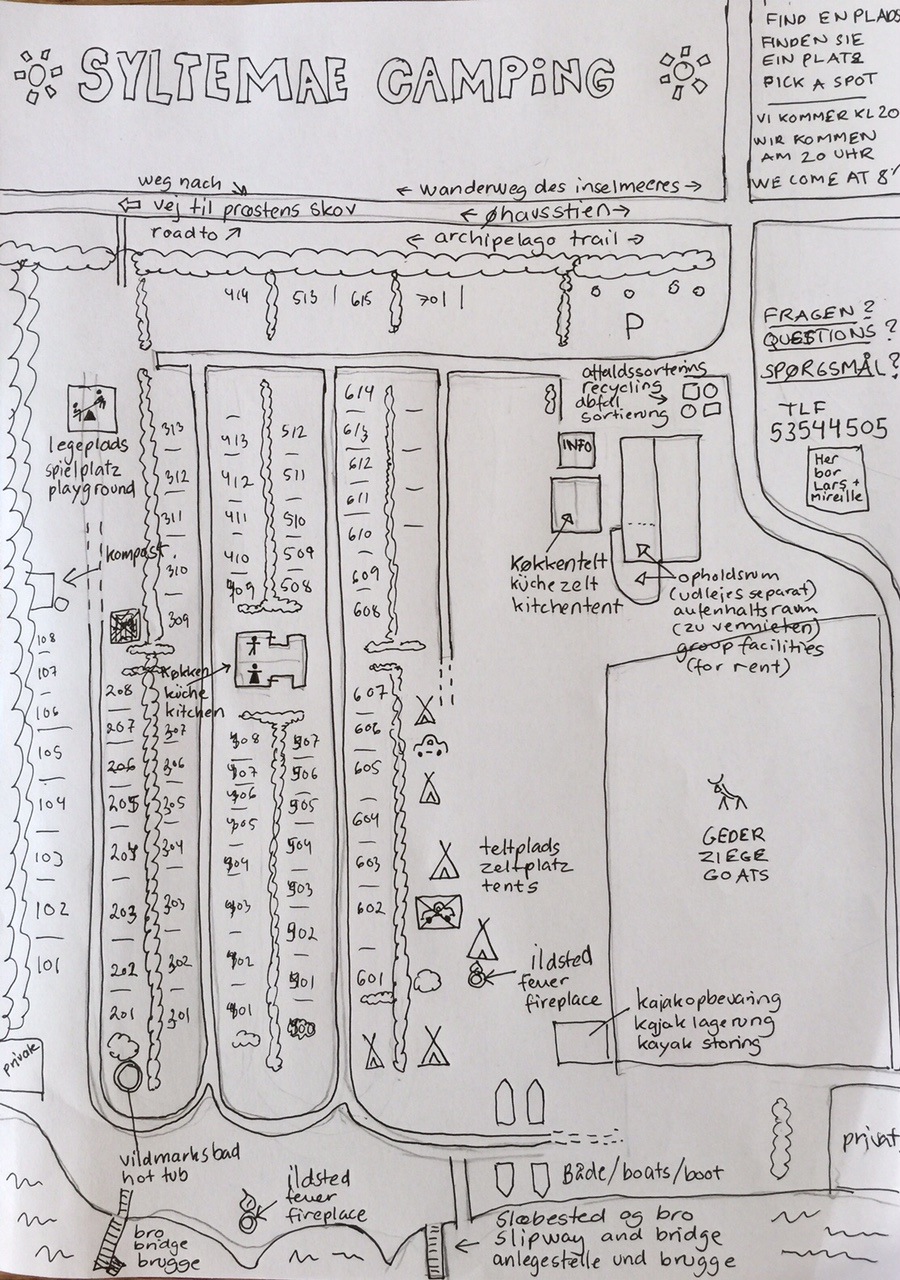 SYLTEMAE CAMPING
FIND EN PLADS
FINDEN SIE
EIN PLATZ
PICK A SPOT
VI KOMMER KL 20
WIR KOMMEN
AM 20 UHR
WE COME AT 8
weg nach
← wanderweg des inselmeeres →
vej til præstens skov
← øhavsstien →
road to
← archipelago trail →
414
513
615
701
P
FRAGEN?
QUESTIONS?
SPØRGSMÅL?
TLF
53544505
Her
bor
Lars +
Mireille
affaldssortering
recycling
abfal
sortierung
INFO
legeplads
spielplatz
playground
313
312
311
310
309
413
412
411
410
409
512
511
510
509
508
614
613
612
611
610
609
608
køkkentelt
küche zelt
kitchentent
opholdsrum
(udlejes separat)
aufenhaltsraum
(zu vermieten)
group facilities
(for rent)
kompost
køkken
küche
kitchen
108
107
106
105
104
103
102
101
208
207
206
205
204
203
202
201
307
306
305
304
303
302
301
408
407
406
405
404
403
402
401
507
506
505
504
503
502
501
607
606
605
604
603
602
601
teltplads
zeltplatz
tents
GEDER
ZIEGE
GOATS
ildsted
feuer
fireplace
kajakopbevaring
kajak lagerung
kayak storing
private
privat
vildmarksbad
hot tub
ildsted
feuer
fireplace
Både/boats/boot
bro
bridge
brugge
slæbested og bro
slipway and bridge
anlegestelle und brugge